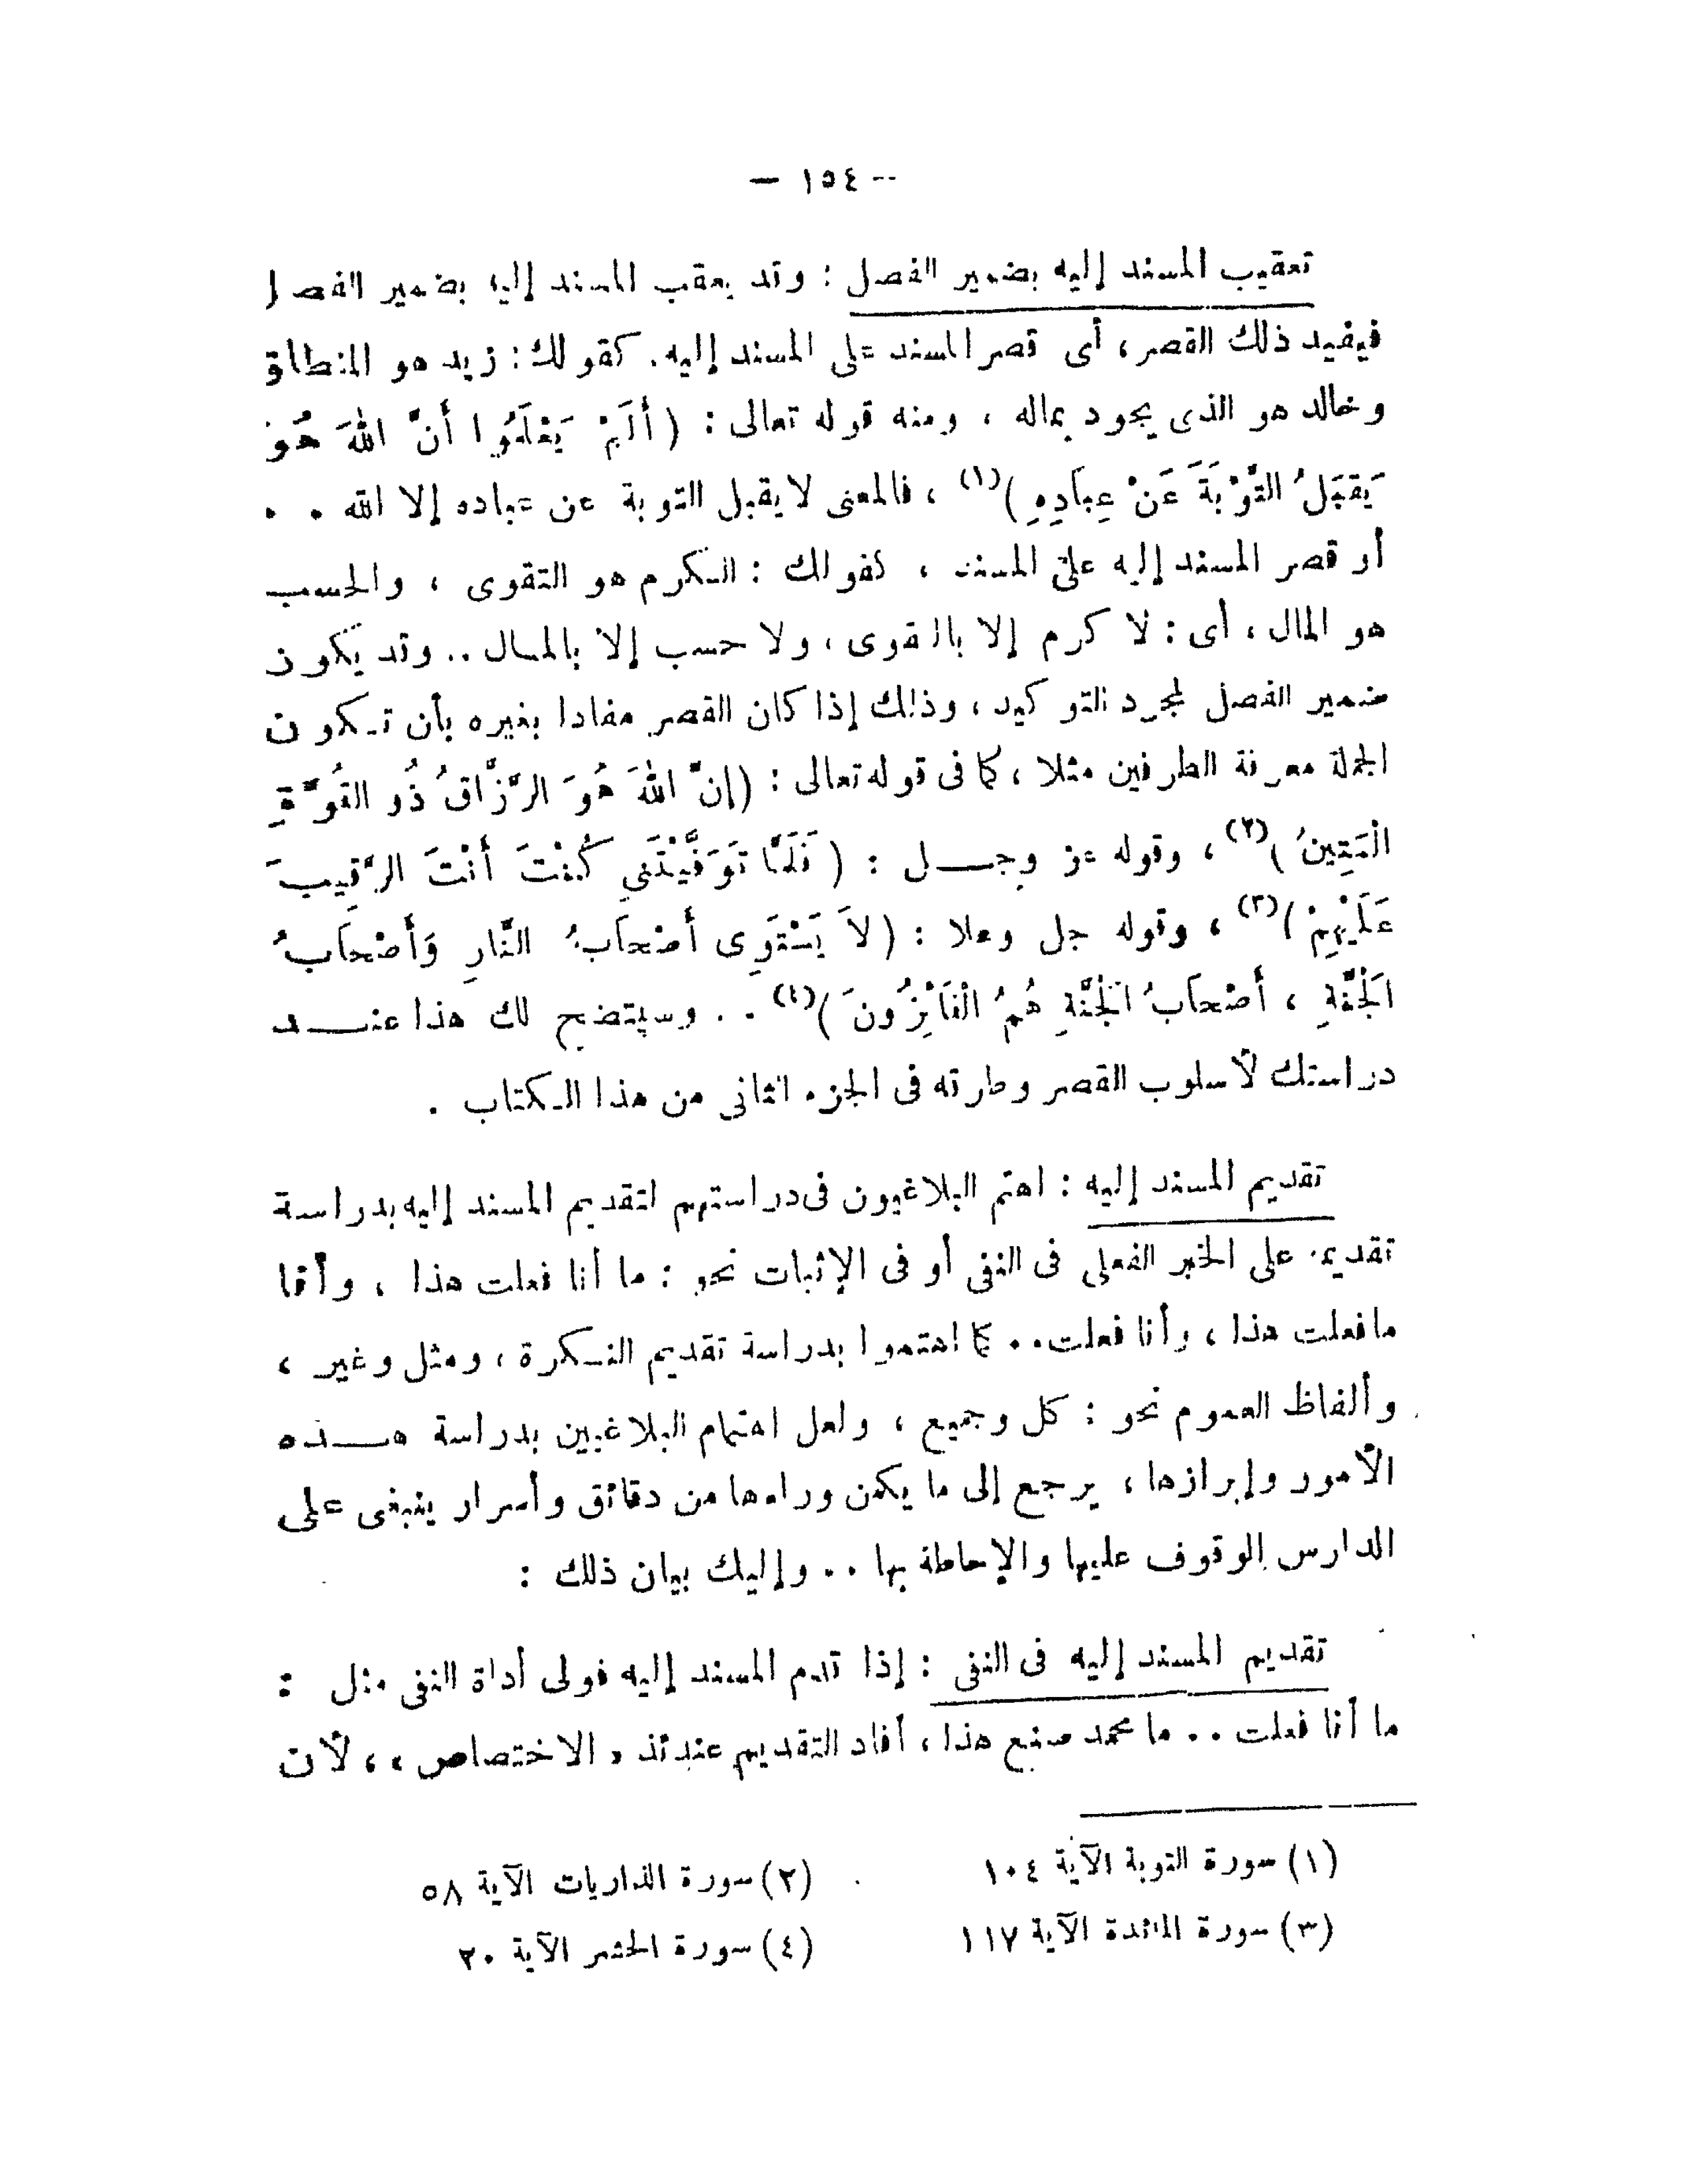 — ١٥٤ —
تعقيب المسند إليه بضمير الفصل : وقد يعقب المسند إليه بضمير الفصل
فيفيد ذلك القصر ، أى قصر المسند على المسند إليه . كقولك : زيد هو المنطلق
وخالد هو الذى يجود بماله ، ومنه قوله تعالى : ( أَلَمْ يَعْلَمُوا أَنَّ اللهَ هُوَ
يَقبَلُ التَّوْبَةَ عَنْ عِبَادِهِ )(١) ، فالمعنى لا يقبل التوبة عن عباده إلا الله . .
أو قصر المسند إليه على المسند ، كقولك : الكرم هو التقوى ، والحسب
هو المال ، أى : لا كرم إلا بالتقوى ، ولا حسب إلا بالمال .. وقد يكون
ضمير الفصل لمجرد التوكيد ، وذلك إذا كان القصر مفادا بغيره بأن تكون
الجملة معرفة الطرفين مثلا ، كما فى قوله تعالى : ( إنَّ اللهَ هُوَ الرَّزَّاقُ ذُو القُوَّةِ
الْمَتِينُ )(٢) ، وقوله عز وجــل : ( فَلَمَّا تَوَفَّيْتَنِي كُنْتَ أَنْتَ الرَّقِيبَ
عَلَيْهِمْ )(٣) ، وقوله جل وعلا : ( لاَ يَسْتَوِى أَصْحَابُ النَّارِ وَأَصْحَابُ
الَجْنَّةِ ، أَصْحَابُ الَجْنَّةِ هُمُ الْفَائِزُونَ )(٤) . . وسيتضح لك هذا عنــد
دراستك لأسلوب القصر وطرقه فى الجزء الثانى من هذا الكتاب .
تقديم المسند إليه : اهتم البلاغيون فى دراستهم لتقديم المسند إليه بدراسة
تقديمه على الخبر الفعلى فى النفى أو فى الإثبات نحو : ما أنا فعلت هذا ، وأنا
ما فعلت هذا ، وأنا فعلت . . كما اهتموا بدراسة تقديم النكرة ، ومثل وغير ،
وألفاظ العموم نحو : كل وجميع ، ولعل اهتمام البلاغيين بدراسة هــذه
الأمور وإبرازها ، يرجع إلى ما يكمن وراءها من دقائق وأسرار ينبغى على
الدارس الوقوف عليها والإحاطة بها . . وإليك بيان ذلك :
تقديم المسند إليه فى النفى : إذا تقدم المسند إليه فولى أداة النفى مثل :
ما أنا فعلت . . ما محمد صنع هذا ، أفاد التقديم عندئذ « الاختصاص » ، لأن
(١) سورة التوبة الآية ١٠٤
(٢) سورة الذاريات الآية ٥٨
(٣) سورة المائدة الآية ١١٧
(٤) سورة الحشر الآية ٢٠